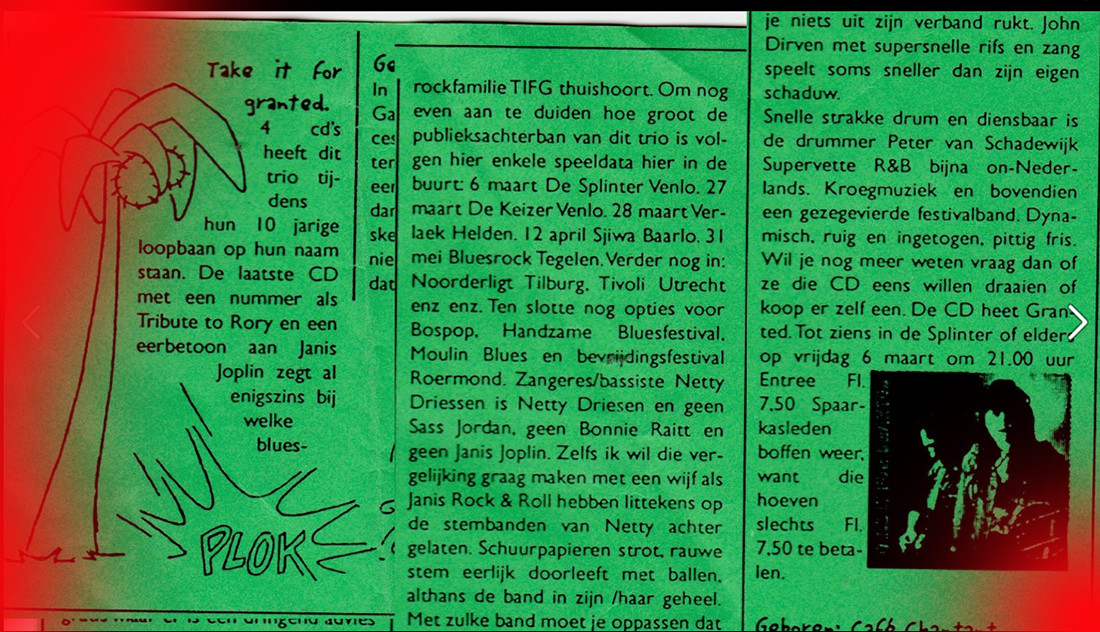 Take it for
granted.
4 cd's
heeft dit
trio tij-
dens
hun 10 jarige
loopbaan op hun naam
staan. De laatste CD
met een nummer als
Tribute to Rory en een
eerbetoon aan Janis
Joplin zegt al
enigszins bij
welke
blues-
PLOK
Ge
In
Ga
ces
ter
eer
dar
ske
nie
dat
rockfamilie TIFG thuishoort. Om nog
even aan te duiden hoe groot de
publieksachterban van dit trio is vol-
gen hier enkele speeldata hier in de
buurt: 6 maart De Splinter Venlo. 27
maart De Keizer Venlo. 28 maart Ver-
laek Helden. 12 april Sjiwa Baarlo. 31
mei Bluesrock Tegelen. Verder nog in:
Noorderligt Tilburg, Tivoli Utrecht
enz enz. Ten slotte nog opties voor
Bospop, Handzame Bluesfestival,
Moulin Blues en bevrijdingsfestival
Roermond. Zangeres/bassiste Netty
Driessen is Netty Driesen en geen
Sass Jordan, geen Bonnie Raitt en
geen Janis Joplin. Zelfs ik wil die ver-
gelijking graag maken met een wijf als
Janis Rock & Roll hebben littekens op
de stembanden van Netty achter
gelaten. Schuurpapieren strot, rauwe
stem eerlijk doorleeft met ballen,
althans de band in zijn /haar geheel.
Met zulke band moet je oppassen dat
je niets uit zijn verband rukt. John
Dirven met supersnelle rifs en zang
speelt soms sneller dan zijn eigen
schaduw.
Snelle strakke drum en diensbaar is
de drummer Peter van Schadewijk
Supervette R&B bijna on-Neder-
lands. Kroegmuziek en bovendien
een gezegevierde festivalband. Dyna-
misch, ruig en ingetogen, pittig fris.
Wil je nog meer weten vraag dan of
ze die CD eens willen draaien of
koop er zelf een. De CD heet Gran-
ted. Tot ziens in de Splinter of elders
op vrijdag 6 maart om 21.00 uur
Entree Fl.
7,50 Spaar-
kasleden
boffen weer,
want die
hoeven
slechts Fl.
7,50 te beta-
len.
Geboren: Café Chantant